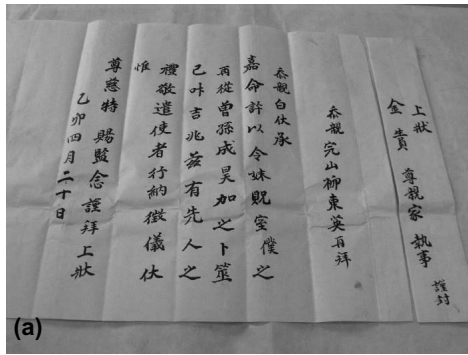 上狀
金 尊親家 執事
謹封
忝親 完山柳東英再拜
忝親白伏承
嘉命許以令妹貺室僕之
再從曾孫成昊加之卜筮
己叶吉兆玆有先人之
禮敬遣使者行納徵儀伏
惟
尊慈特 賜鑒念謹拜上狀
乙卯四月二十日
(a)